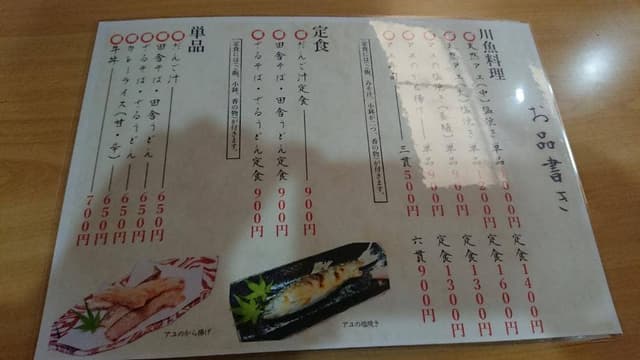 お品書き
川魚料理
天然アユ(中)塩焼き 単品 1000円 定食 1400円
天然アユ(大)塩焼き 単品 1200円 定食 1600円
アユの塩焼き(養殖) 単品 900円 定食 1300円
アユのから揚げ 単品 900円 定食 1300円
三貫 500円 六貫 900円
定食
だんご汁定食 900円
田舎そば・田舎うどん定食 900円
ざるそば・ざるうどん定食 900円
定食にはご飯、小鉢、香の物が付きます。
単品
だんご汁 650円
田舎そば・田舎うどん 650円
ざるそば・ざるうどん 650円
カレーライス(甘・辛) 650円
牛丼 700円
アユのから揚げ
アユの塩焼き